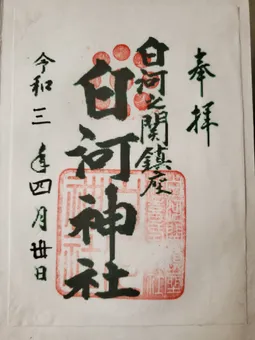 奉拝
白河之関鎮座
白河神社
令和三年四月廿日